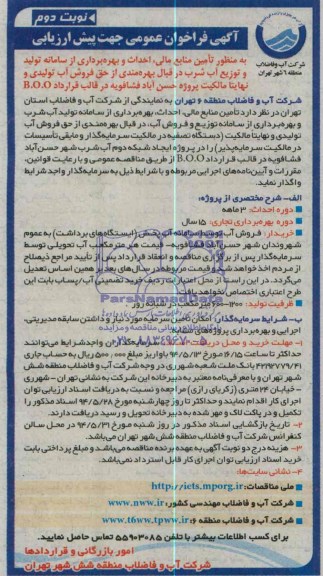 نوبت دوم
آگهی فراخوان عمومی جهت پیش ارزیابی
شرکت آب و فاضلاب
منطقه ۶ شهر تهران
به منظور تأمین منابع مالی، احداث و بهره‌برداری از سامانه تولید
و توزیع آب شرب در قبال بهره‌مندی از حق فروش آب تولیدی و
نهایتا مالکیت پروژه حسن آباد فشافویه در قالب قرارداد B.O.O
شرکت آب و فاضلاب منطقه ۶ تهران به نمایندگی از شرکت آب و فاضلاب استان
تهران در نظر دارد تأمین منابع مالی، احداث، بهره‌برداری از سامانه تولید آب شرب
و بهره‌برداری از سامانه توزیع و فروش آب، در قبال بهره‌مندی از حق فروش آب
تولیدی و نهایتا مالکیت (دستگاه تصفیه در مالکیت سرمایه‌گذار و مابقی تأسیسات
در مالکیت سرمایه‌پذیر) را در پروژه ایجاد شبکه دوم آب شرب شهر حسن‌آباد
فشافویه در قالب قرارداد B.O.O از طریق مناقصه عمومی و با رعایت قوانین،
مقررات و آیین‌نامه‌های اجرایی مربوطه و با شرایط ذیل به سرمایه‌گذار واجد شرایط
واگذار نماید.
الف- شرح مختصری از پروژه:
دوره احداث: ۳ ماهه
دوره بهره‌برداری تجاری: ۱۵ سال
خریدار: فروش آب توسط سامانه آب پخش (ایستگاه‌های برداشت) به عموم
شهروندان شهر حسن آباد فشافویه- قیمت هر متر مکعب آب تحویلی توسط
سرمایه‌گذار پس از برگزاری مناقصه و انعقاد قرارداد پس از تأیید مراجع ذیصلاح
از مردم اخذ خواهد شد و قیمت مربوطه در سال‌های بعد بر همین اساس تعدیل
می‌گردد. در این راستا از محل اعتبارات ردیف خرید تضمینی آب/پساب بابت این
طرح اعتباری اختصاص نخواهد یافت.
ظرفیت تولید: متر مکعب در شبانه روز
ب- شرایط سرمایه‌گذار: امکان تأمین سرمایه مورد نیاز و داشتن سابقه مدیریتی،
اجرایی و بهره‌برداری پروژه‌های مشابه.
ParsNamadData
۰۲۱-۸۸۳۴۹۶۷۰-۵
۱- مهلت خرید و محل دریافت اسناد: سرمایه‌گذاران واجد شرایط می‌توانند
حداکثر تا ساعت ۱۶/۱۵ مورخ ۹۴/۵/۱۳ با واریز مبلغ ۵۰۰,۰۰۰ ریال به حساب جاری
۴۲۱۹۲۷۷۹/۴۱ بانک ملت شعبه شهرری در وجه شرکت آب و فاضلاب منطقه شش
شهر تهران و با معرفی‌نامه معتبر به دبیرخانه این شرکت به نشانی تهران - شهرری
- خیابان ۲۴ متری (زکریای رازی) مراجعه و نسبت به دریافت اسناد ارزیابی توان
اجرای کار اقدام نمایند و حداکثر تا روز چهارشنبه مورخ ۹۴/۵/۲۸ اسناد مذکور را
تکمیل و در پاکت لاک و مهر شده به دبیرخانه تحویل و رسید دریافت دارند.
۲- تاریخ بازگشایی اسناد مذکور در روز شنبه مورخ ۹۴/۵/۳۱ در محل سالن
کنفرانس شرکت آب و فاضلاب منطقه شش شهر تهران می‌باشد.
۳- هزینه درج دو نوبت آگهی به عهده برنده مناقصه می‌باشد و مبلغ پرداختی بابت
خرید اسناد ارزیابی توان اجرای کار قابل استرداد نمی‌باشد.
۴- نشانی سایت‌ها:
ملی مناقصات: http://iets.mporg.ir
شرکت آب و فاضلاب مهندسی کشور: www.nww.ir
شرکت آب و فاضلاب منطقه ۶: www.t6ww.tpww.ir
برای کسب اطلاعات بیشتر با تلفن ۵۵۹۰۳۰۸۵ تماس حاصل نمایید.
امور بازرگانی و قراردادها
شرکت آب و فاضلاب منطقه شش شهر تهران